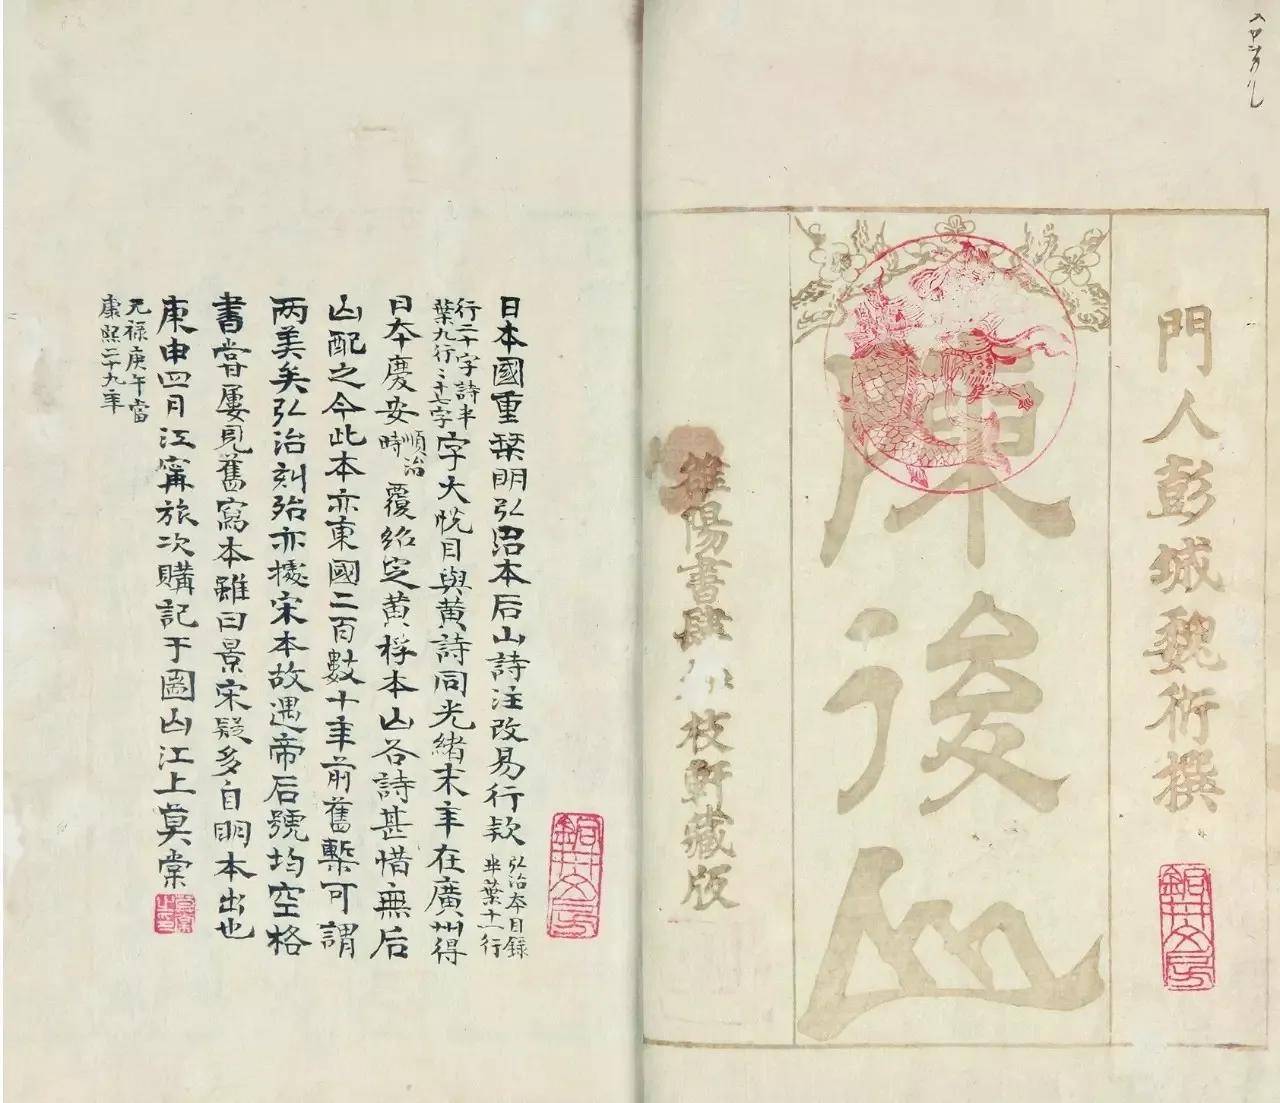 門人彭城魏衍撰
陳後山
雒陽書肆 枝軒藏版
銅井文房
銅井文房
日本國重栞明弘治本后山詩注改易行款弘治本目錄半葉十一行
行二十字詩半葉九行〻十七字字大悅目與黃詩同光緒末年在廣州得
日本慶安順治時覆紹定黃桴本山谷詩甚惜無后
山配之今此本亦東國二百數十年前舊槧可謂
两美矣弘治刻殆亦據宋本故遇帝后號均空格
書嘗屢見舊寫本雖曰景宋疑多自明本出也
庚申四月江甯旅次購記于圌山江上莫棠
元祿庚午當
康熙二十九年